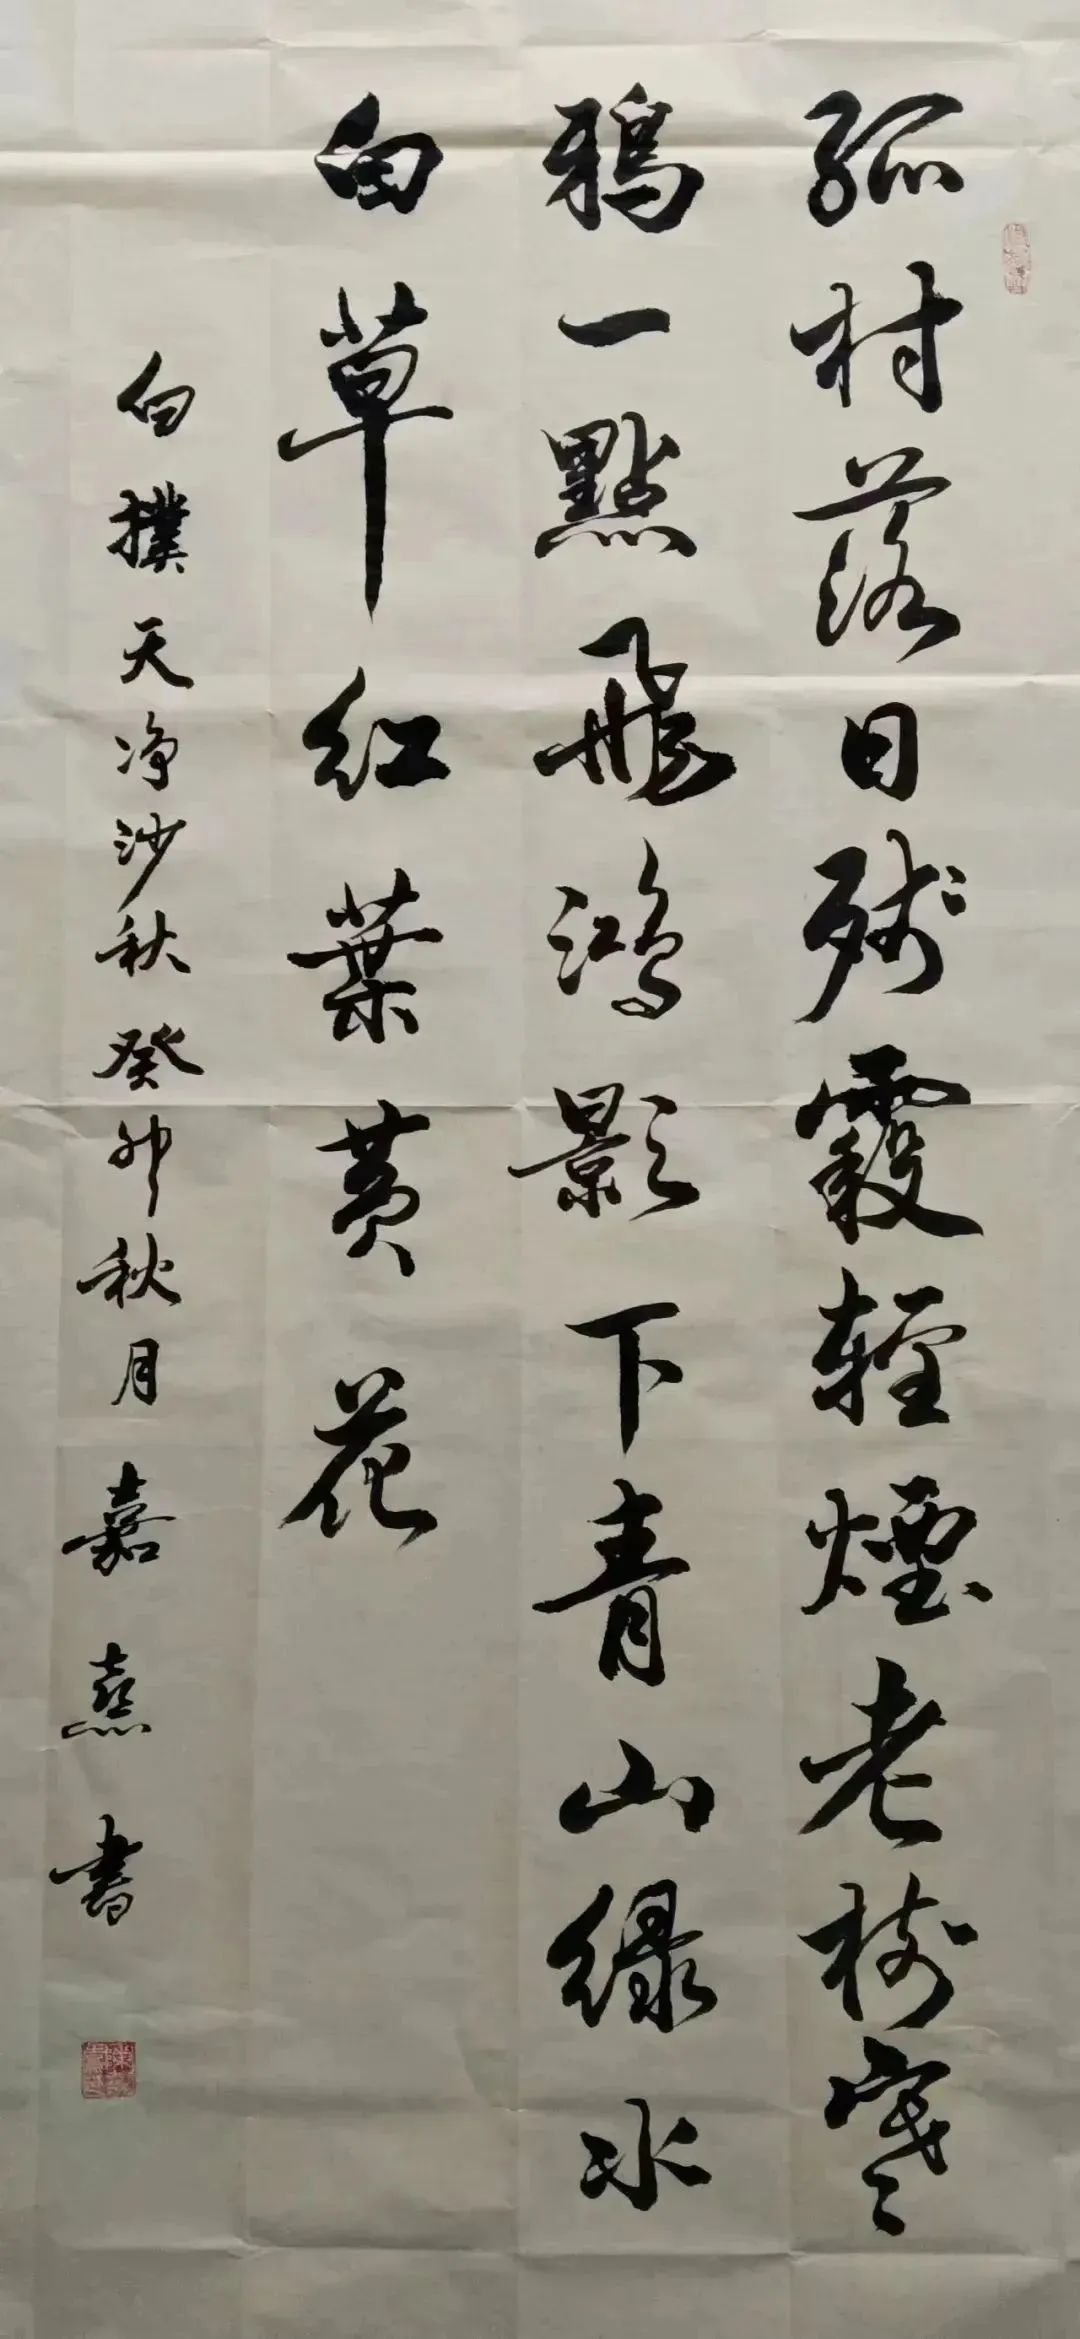 孤村落日残霞輕煙老樹寒
鴉一點飛鴻影下青山緑水
白草紅葉黄花
白撲天净沙秋癸卯秋月嘉熹書